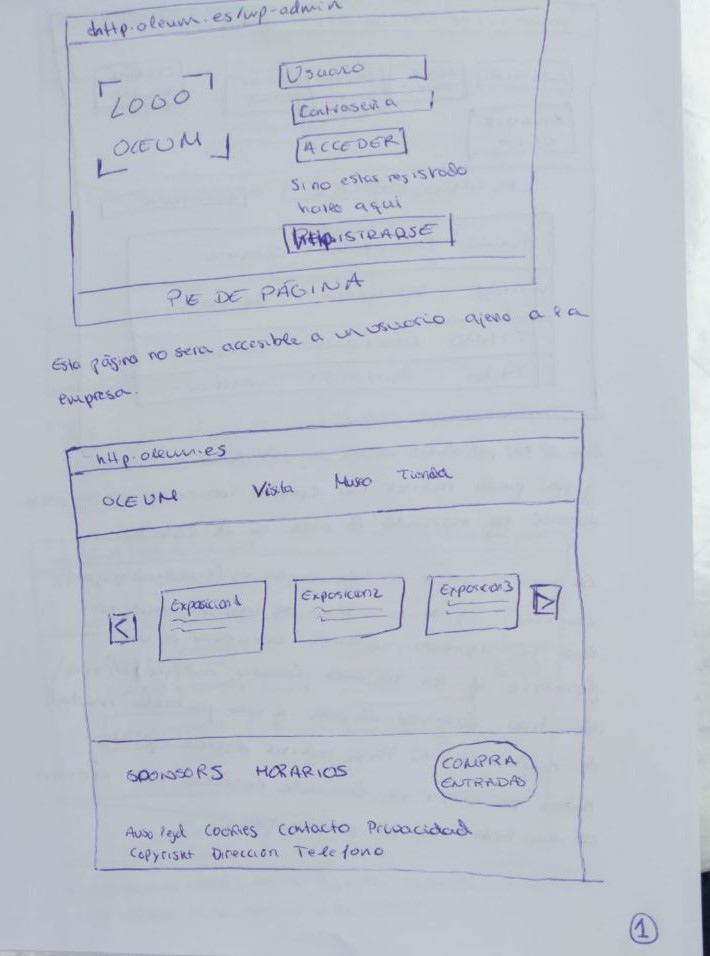 http.oleum.es/wp-admin
LOGO
OLEUM
Usuario
Contraseña
ACCEDER
Si no estas registrado
hazlo aqui
REGISTRARSE
PIE DE PÁGINA
Esta página no sera accesible a un usuario ajeno a la
empresa.
http.oleum.es
OLEUM Visita Museo Tienda
< Exposicion1 Exposicion2 Exposicion3 >
SPONSORS HORARIOS
COMPRA
ENTRADAS
Aviso legal Cookies Contacto Privacidad
Copyright Dirección Telefono
1